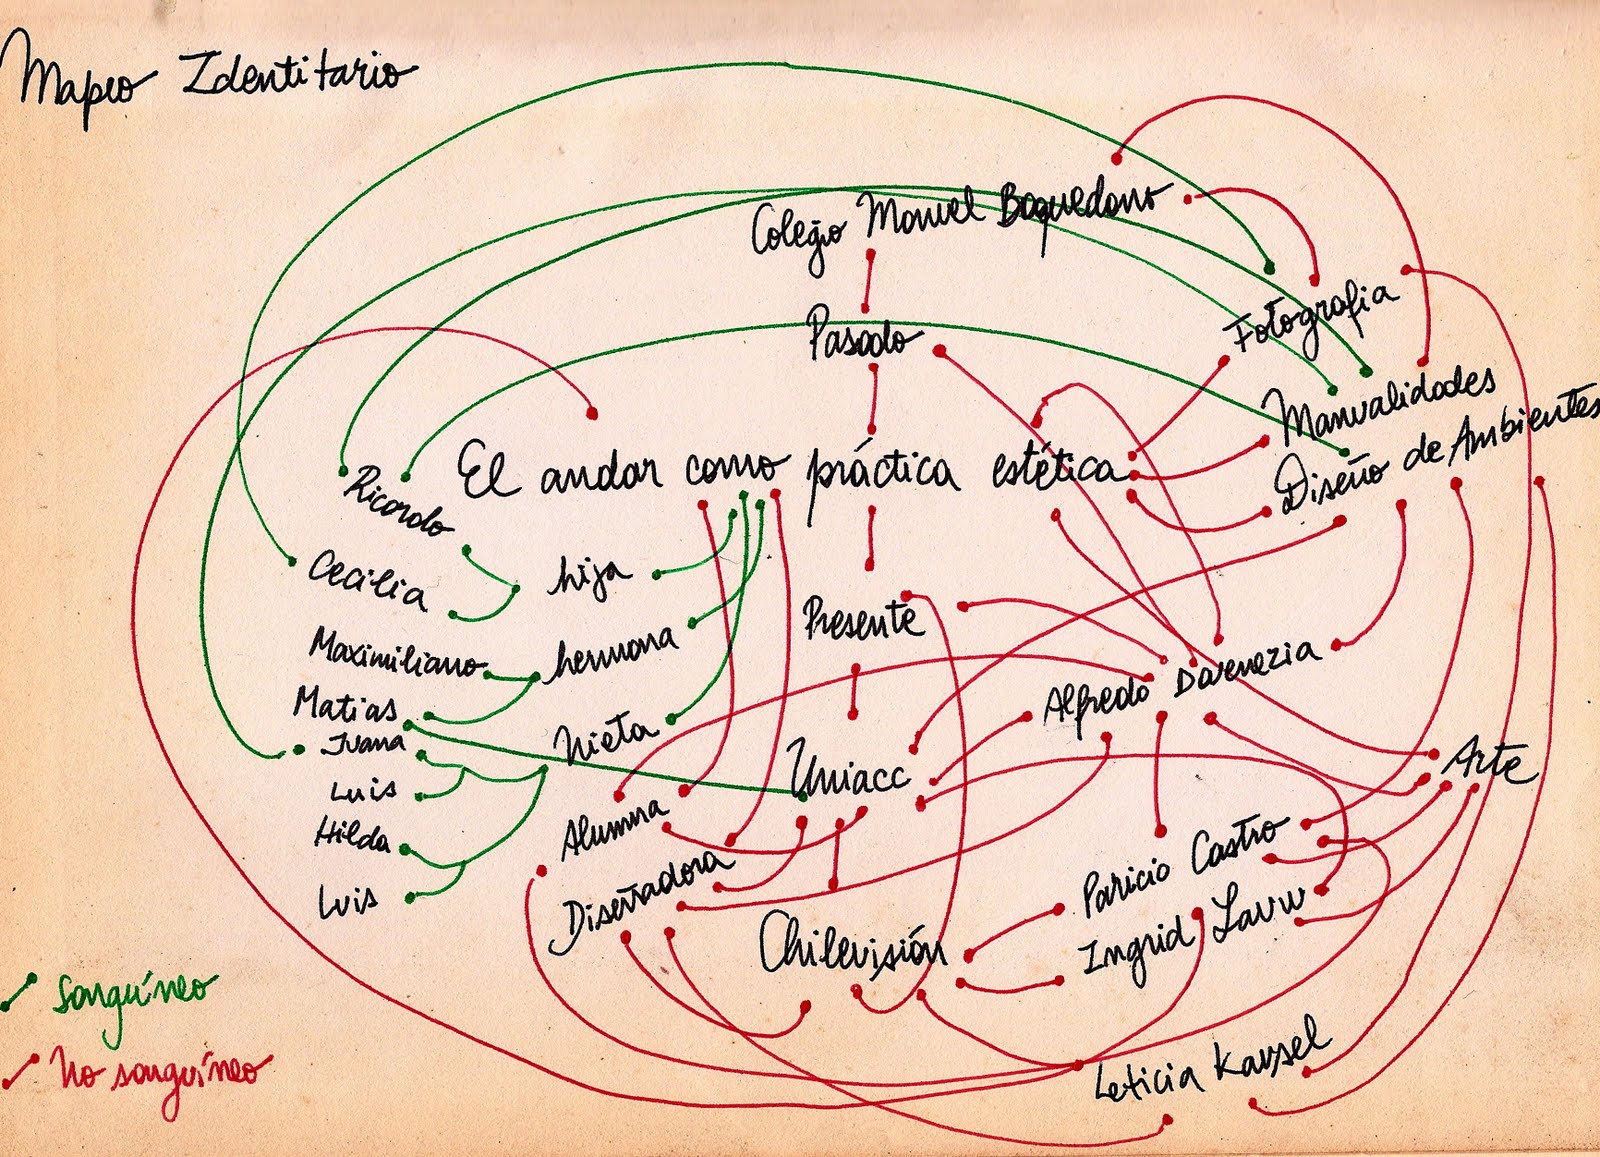 Mapeo Identitario
Colegio Manuel Baquedano
Pasado
Fotografia
Manualidades
Diseño de Ambientes
El andar como práctica estética
Ricardo
Cecilia
hija
Maximiliano
hermana
Presente
Matias
Juana
Nieta
Luis
Hilda
Luis
Alumna
Diseñadora
Uniacc
Alfredo Davenezia
Arte
Paricio Castro
Chilevisión
Ingrid Lauw
Leticia Kausel
sanguíneo
No sanguíneo